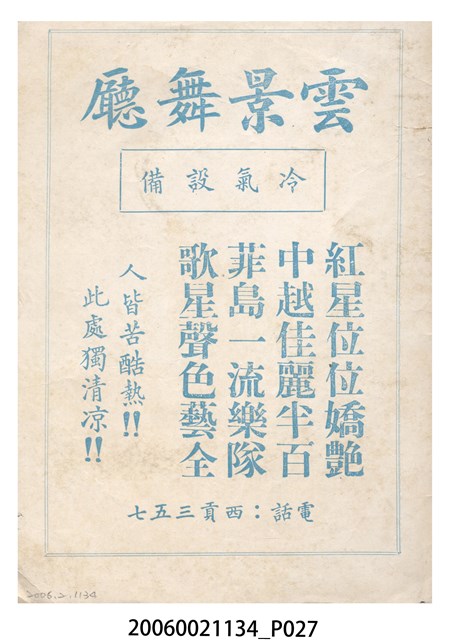 雲景舞廳
冷氣設備
紅星位位嬌艷
中越佳麗半百
菲島一流樂隊
歌星聲色藝全
人皆苦酷熱!!
此處獨清凉!!
電話：西貢三五七
2006.2.1134
20060021134_P027